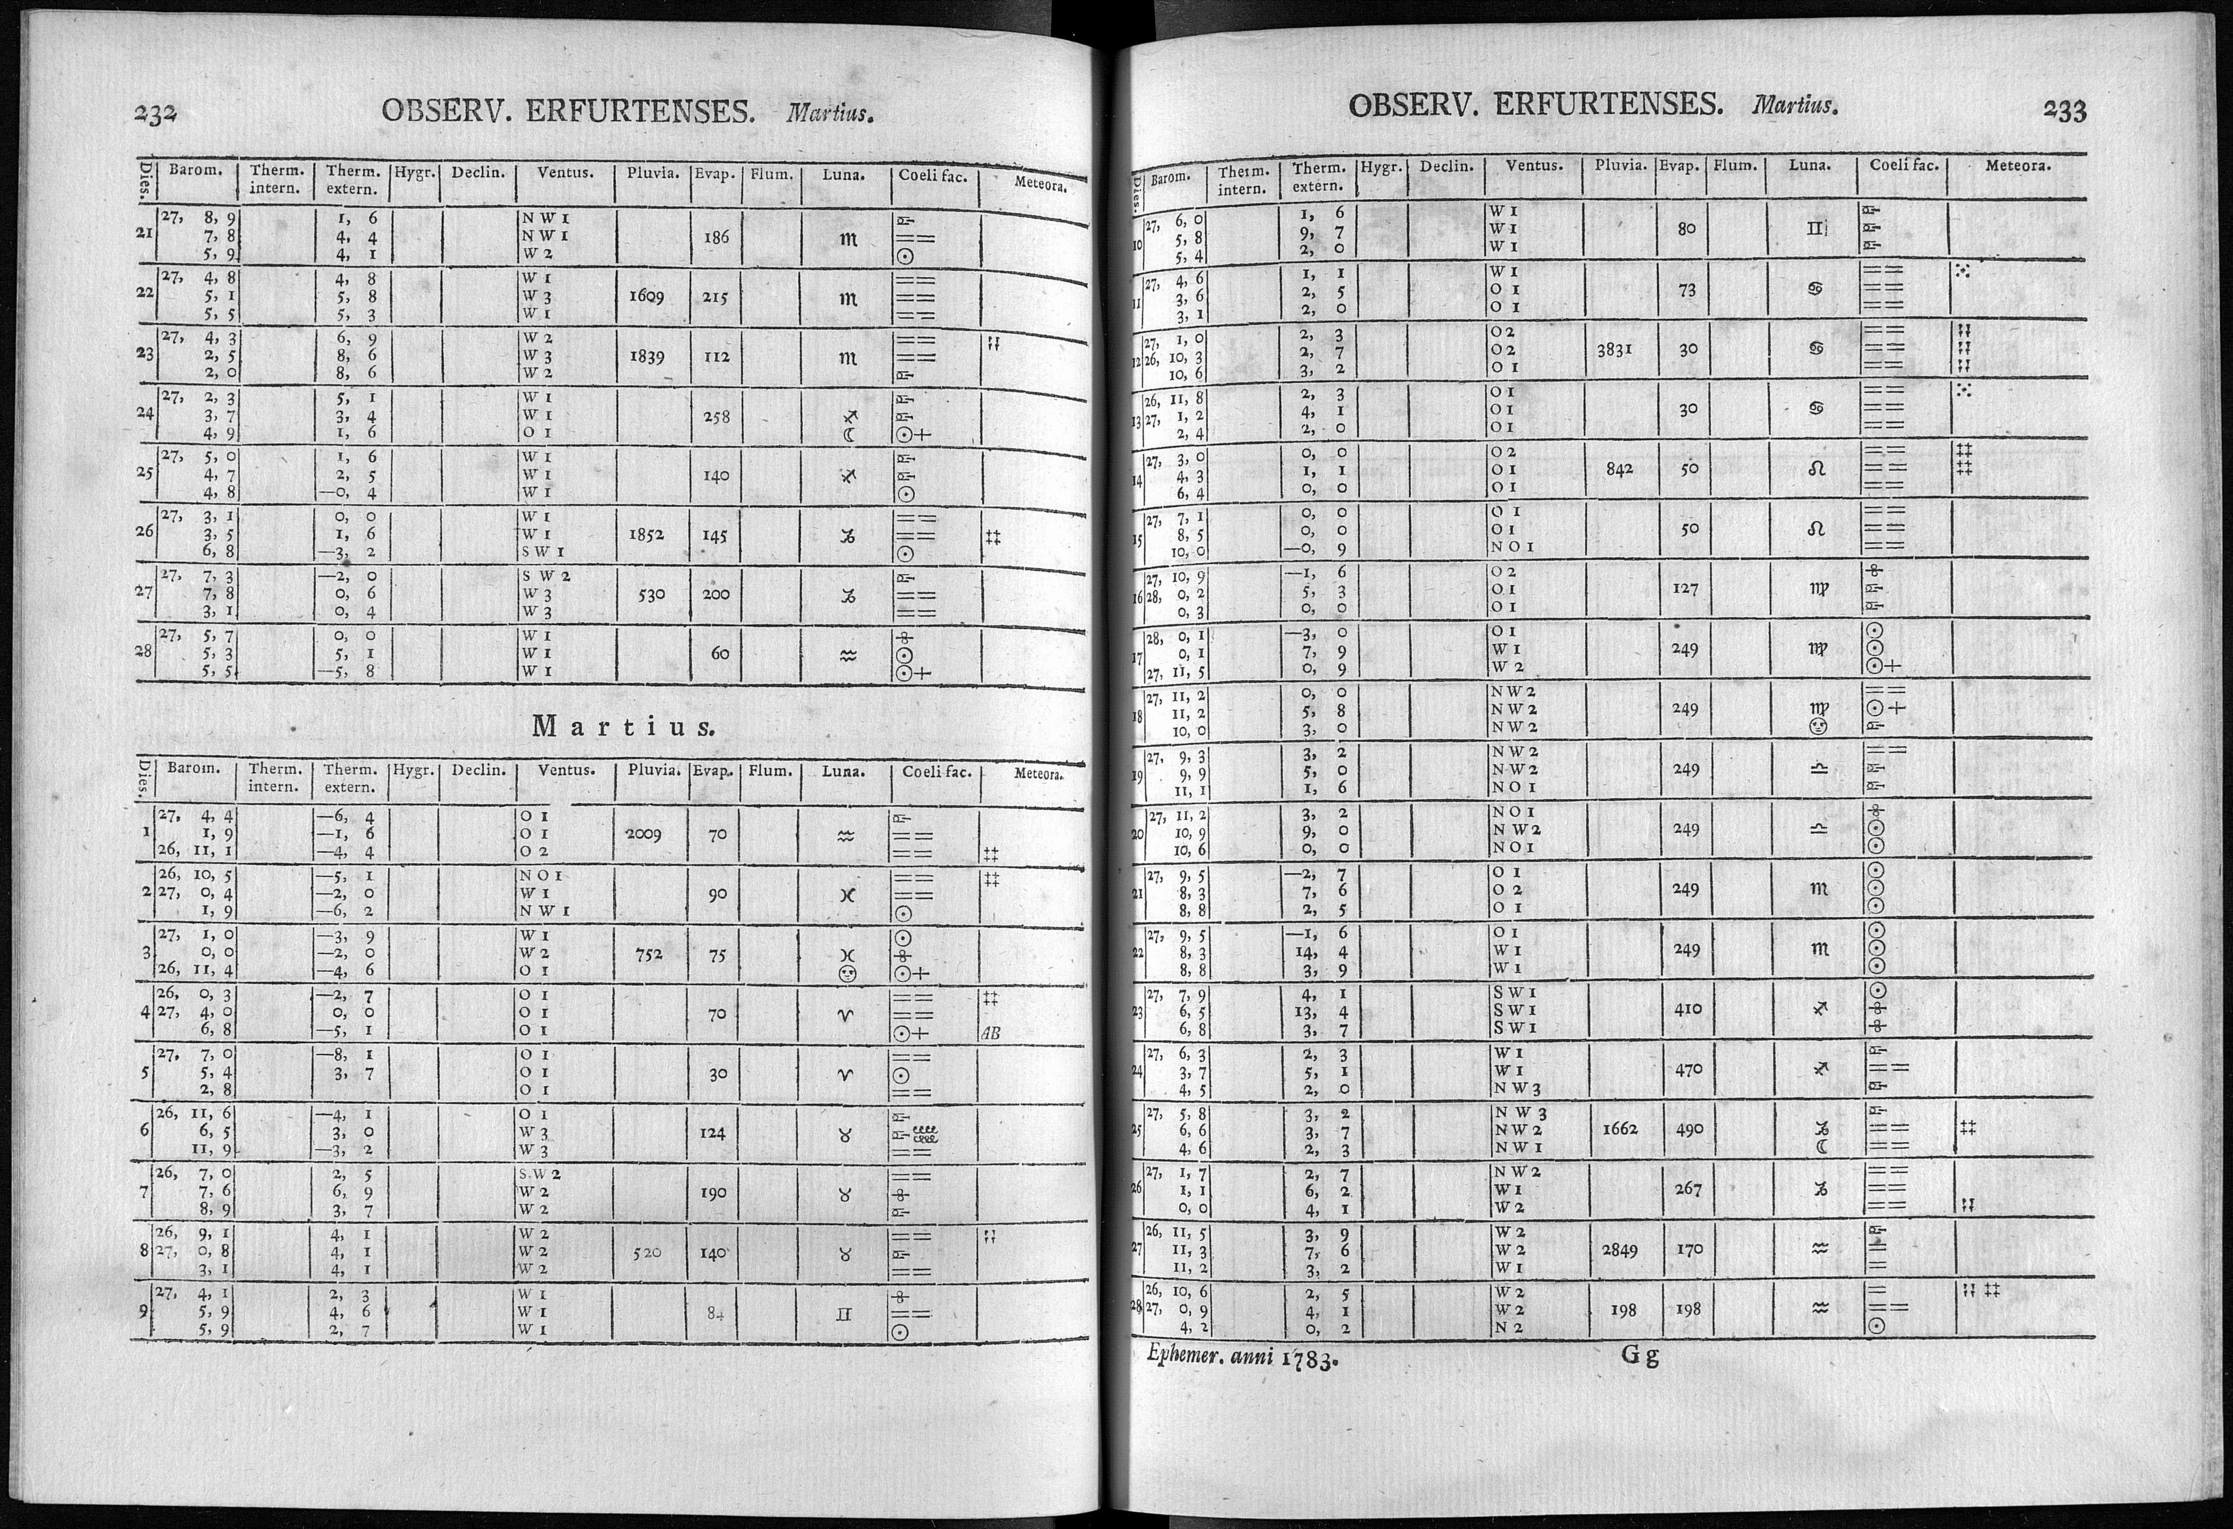 232 OBSERV. ERFURTENSES. Martius.
Dies. Barom. Therm. intern. Therm. extern. Hygr. Declin. Ventus. Pluvia. Evap. Flum. Luna. Coeli fac. Meteora.
27, 8, 9 1, 6 N W 1
21 7, 8 4, 4 N W 1 186 ♏ ==
5, 9 4, 1 W 2 ☉
27, 4, 8 4, 8 W 1 ==
22 5, 1 5, 8 W 3 1609 215 ♏ ==
5, 5 5, 3 W 1 ==
27, 4, 3 6, 9 W 2 ==
23 2, 5 8, 6 W 3 1839 112 ♏ ==
2, 0 8, 6 W 2
27, 2, 3 5, 1 W 1
24 3, 7 3, 4 W 1 258 ♐
4, 9 1, 6 O 1 ☾ ☉+
27, 5, 0 1, 6 W 1
25 4, 7 2, 5 W 1 140 ♐
4, 8 —0, 4 W 1 ☉
27, 3, 1 0, 0 W 1 ==
26 3, 5 1, 6 W 1 1852 145 ♑ == ‡‡
6, 8 —3, 2 S W 1 ☉
27, 7, 3 —2, 0 S W 2
27 7, 8 0, 6 W 3 530 200 ♑ ==
3, 1 0, 4 W 3 ==
27, 5, 7 0, 0 W 1
28 5, 3 5, 1 W 1 60 ♒ ☉
5, 5 —5, 8 W 1 ☉+
Martius.
Dies. Barom. Therm. intern. Therm. extern. Hygr. Declin. Ventus. Pluvia. Evap. Flum. Luna. Coeli fac. Meteora.
27, 4, 4 —6, 4 O 1
1 1, 9 —1, 6 O 1 2009 70 ♒ ==
26, 11, 1 —4, 4 O 2 == ‡‡
26, 10, 5 —5, 1 N O 1 == ‡‡
2 27, 0, 4 —2, 0 W 1 90 ♓ ==
1, 9 —6, 2 N W 1 ☉
27, 1, 0 —3, 9 W 1 ☉
3 0, 0 —2, 0 W 2 752 75 ♓
26, 11, 4 —4, 6 O 1 ☉+
26, 0, 3 —2, 7 O 1 == ‡‡
4 27, 4, 0 0, 0 O 1 70 ♈ ==
6, 8 —5, 1 O 1 ☉+ AB
27, 7, 0 —8, 1 O 1 ==
5 5, 4 3, 7 O 1 30 ♈ ☉
2, 8 O 1 ==
26, 11, 6 —4, 1 O 1
6 6, 5 3, 0 W 3 124 ♉
11, 9 —3, 2 W 3 ==
26, 7, 0 2, 5 S W 2 ==
7 7, 6 6, 9 W 2 190 ♉
8, 9 3, 7 W 2
26, 9, 1 4, 1 W 2 ==
8 27, 0, 8 4, 1 W 2 520 140 ♉
3, 1 4, 1 W 2 ==
27, 4, 1 2, 3 W 1
9 5, 9 4, 6 W 1 84 ♊ ==
5, 9 2, 7 W 1 ☉
OBSERV. ERFURTENSES. Martius. 233
Dies. Barom. Therm. intern. Therm. extern. Hygr. Declin. Ventus. Pluvia. Evap. Flum. Luna. Coeli fac. Meteora.
27, 6, 0 1, 6 W 1
10 5, 8 9, 7 W 1 80 ♊
5, 4 2, 0 W 1
27, 4, 6 1, 1 W 1 ==
11 3, 6 2, 5 O 1 73 ♋ ==
3, 1 2, 0 O 1 ==
27, 1, 0 2, 3 O 2 ==
12 26, 10, 3 2, 7 O 2 3831 30 ♋ ==
10, 6 3, 2 O 1 ==
26, 11, 8 2, 3 O 1 ==
13 27, 1, 2 4, 1 O 1 30 ♋ ==
2, 4 2, 0 O 1 ==
27, 3, 0 0, 0 O 2 == ‡‡
14 4, 3 1, 1 O 1 842 50 ♌ == ‡‡
6, 4 0, 0 O 1 ==
27, 7, 1 0, 0 O 1 ==
15 8, 5 0, 0 O 1 50 ♌ ==
10, 0 —0, 9 N O 1 ==
27, 10, 9 —1, 6 O 2
16 28, 0, 2 5, 3 O 1 127 ♍
0, 3 0, 0 O 1
28, 0, 1 —3, 0 O 1 ☉
17 0, 1 7, 9 W 1 249 ♍ ☉
27, 11, 5 0, 9 W 2 ☉+
27, 11, 2 0, 0 N W 2 ==
18 11, 2 5, 8 N W 2 249 ♍ ☉+
10, 0 3, 0 N W 2
27, 9, 3 3, 2 N W 2 ==
19 9, 9 5, 0 N W 2 249 ♎
11, 1 1, 6 N O 1
27, 11, 2 3, 2 N O 1
20 10, 9 9, 0 N W 2 249 ♎ ☉
10, 6 0, 0 N O 1 ☉
27, 9, 5 —2, 7 O 1 ☉
21 8, 3 7, 6 O 2 249 ♏ ☉
8, 8 2, 5 O 1 ☉
27, 9, 5 —1, 6 O 1 ☉
22 8, 3 14, 4 W 1 249 ♏ ☉
8, 8 3, 9 W 1 ☉
27, 7, 9 4, 1 S W 1 ☉
23 6, 5 13, 4 S W 1 410 ♐
6, 8 3, 7 S W 1
27, 6, 3 2, 3 W 1
24 3, 7 5, 1 W 1 470 ♐ ==
4, 5 2, 0 N W 3
27, 5, 8 3, 2 N W 3
25 6, 6 3, 7 N W 2 1662 490 ♑ == ‡‡
4, 6 2, 3 N W 1 ☾ ==
27, 1, 7 2, 7 N W 2 ==
26 1, 1 6, 2 W 1 267 ♑ ==
0, 0 4, 1 W 2 ==
26, 11, 5 3, 9 W 2
27 11, 3 7, 6 W 2 2849 170 ♒ =
11, 2 3, 2 W 1 =
26, 10, 6 2, 5 W 2 = ‡‡
28 27, 0, 9 4, 1 W 2 198 198 ♒ ==
4, 2 0, 2 N 2 ☉
Ephemer. anni 1783. G g